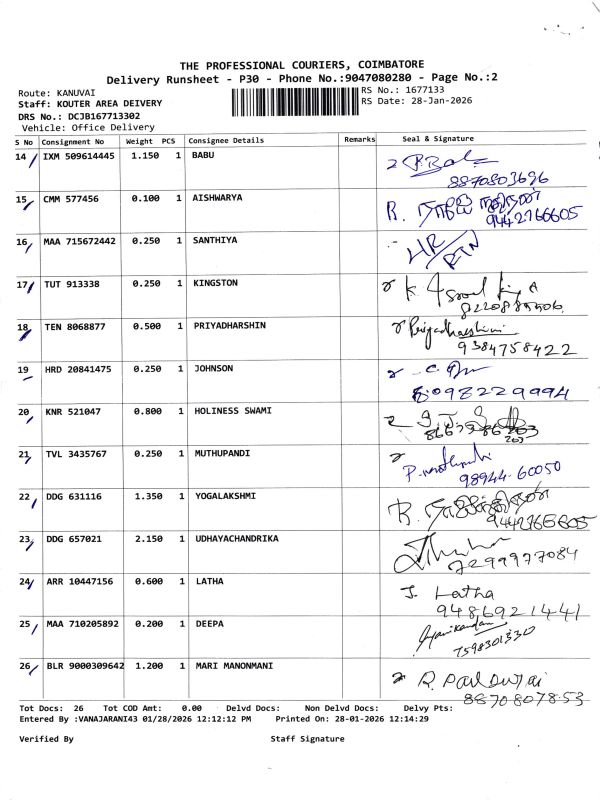 THE PROFESSIONAL COURIERS, COIMBATORE
Delivery Runsheet - P30 - Phone No.:9047080280 - Page No.:2
Route: KANUVAI
RS No.: 1677133
Staff: KOUTER AREA DEIVERY
RS Date: 28-Jan-2026
DRS No.: DCJB167713302
Vehicle: Office Delivery
S No Consignment No Weight PCS Consignee Details Remarks Seal & Signature
14 IXM 509614445 1.150 1 BABU
8870803696
15 CMM 577456 0.100 1 AISHWARYA R.
9442766605
16 MAA 715672442 0.250 1 SANTHIYA
17 TUT 913338 0.250 1 KINGSTON K
18 TEN 8068877 0.500 1 PRIYADHARSHIN Priyadharshini
9384758422
19 HRD 20841475 0.250 1 JOHNSON C.
8098229994
20 KNR 521047 0.800 1 HOLINESS SWAMI
203
21 TVL 3435767 0.250 1 MUTHUPANDI
98944-60050
22 DDG 631116 1.350 1 YOGALAKSHMI R.
9442766605
23 DDG 657021 2.150 1 UDHAYACHANDRIKA
7299977084
24 ARR 10447156 0.600 1 LATHA J. Latha
9486921441
25 MAA 710205892 0.200 1 DEEPA Manikandan
7598301330
26 BLR 9000309642 1.200 1 MARI MANONMANI R. Paul Durai
8870807853
Tot Docs: 26 Tot COD Amt: 0.00 Delvd Docs: Non Delvd Docs: Delvy Pts:
Entered By :VANAJARANI43 01/28/2026 12:12:12 PM Printed On: 28-01-2026 12:14:29
Verified By Staff Signature